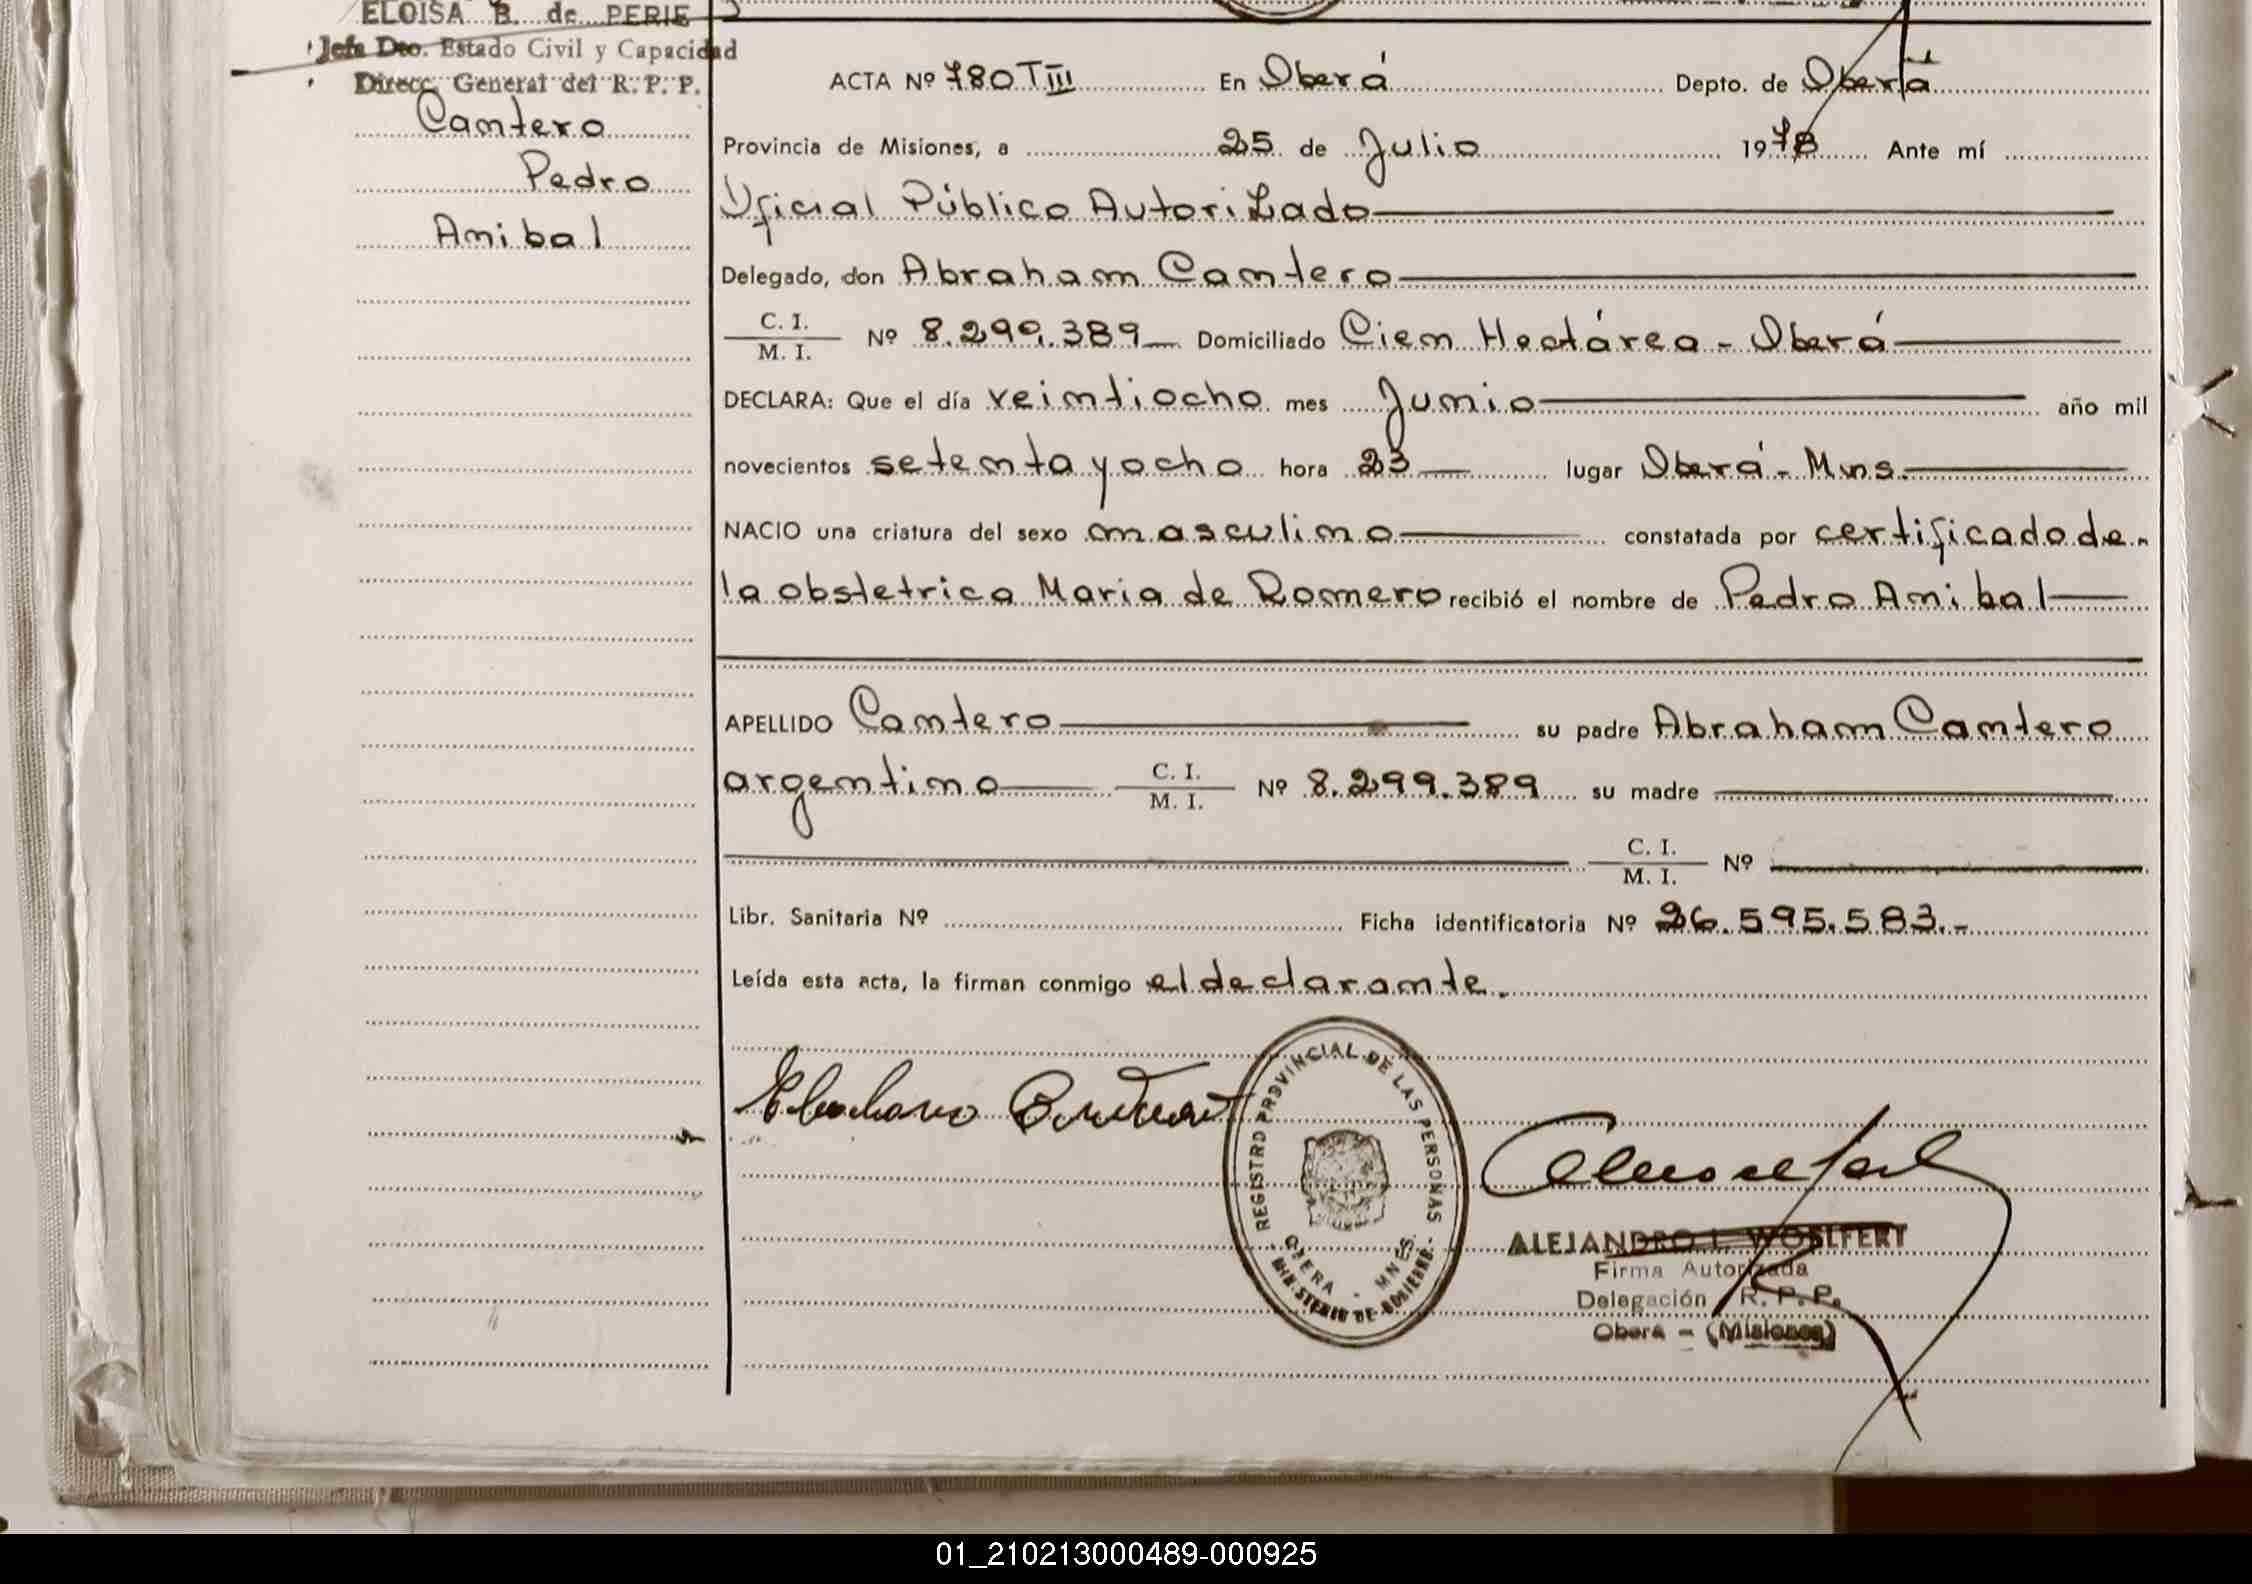 ELOISA B. de PERIE
Jefa Dto. Estado Civil y Capacidad
Direcc. General del R. P. P.
Cantero
Pedro
Anibal
ACTA Nº 780 TIII En Oberá Depto. de Oberá
Provincia de Misiones, a 25 de Julio 1978 Ante mí
Oficial Público Autorizado
Delegado, don Abraham Cantero
C. I.
M. I. Nº 8.299.389 Domiciliado Cien Hectárea - Oberá
DECLARA: Que el día veintiocho mes Junio año mil
novecientos setenta y ocho hora 23 lugar Oberá - Mns.
NACIO una criatura del sexo masculino constatada por certificado de
la obstetrica Maria de Romero recibió el nombre de Pedro Anibal
APELLIDO Cantero su padre Abraham Cantero
argentino C. I.
M. I. Nº 8.299.389 su madre
C. I.
M. I. Nº
Libr. Sanitaria Nº Ficha identificatoria Nº 26.595.583.-
Leída esta acta, la firman conmigo el declarante.
REGISTRO PROVINCIAL DE LAS PERSONAS
OBERA - MNES.
MINISTERIO DE GOBIERNO
ALEJANDRO L. WOSLFERT
Firma Autorizada
Delegación R. P. P.
Oberá - (Misiones)
01_210213000489-000925